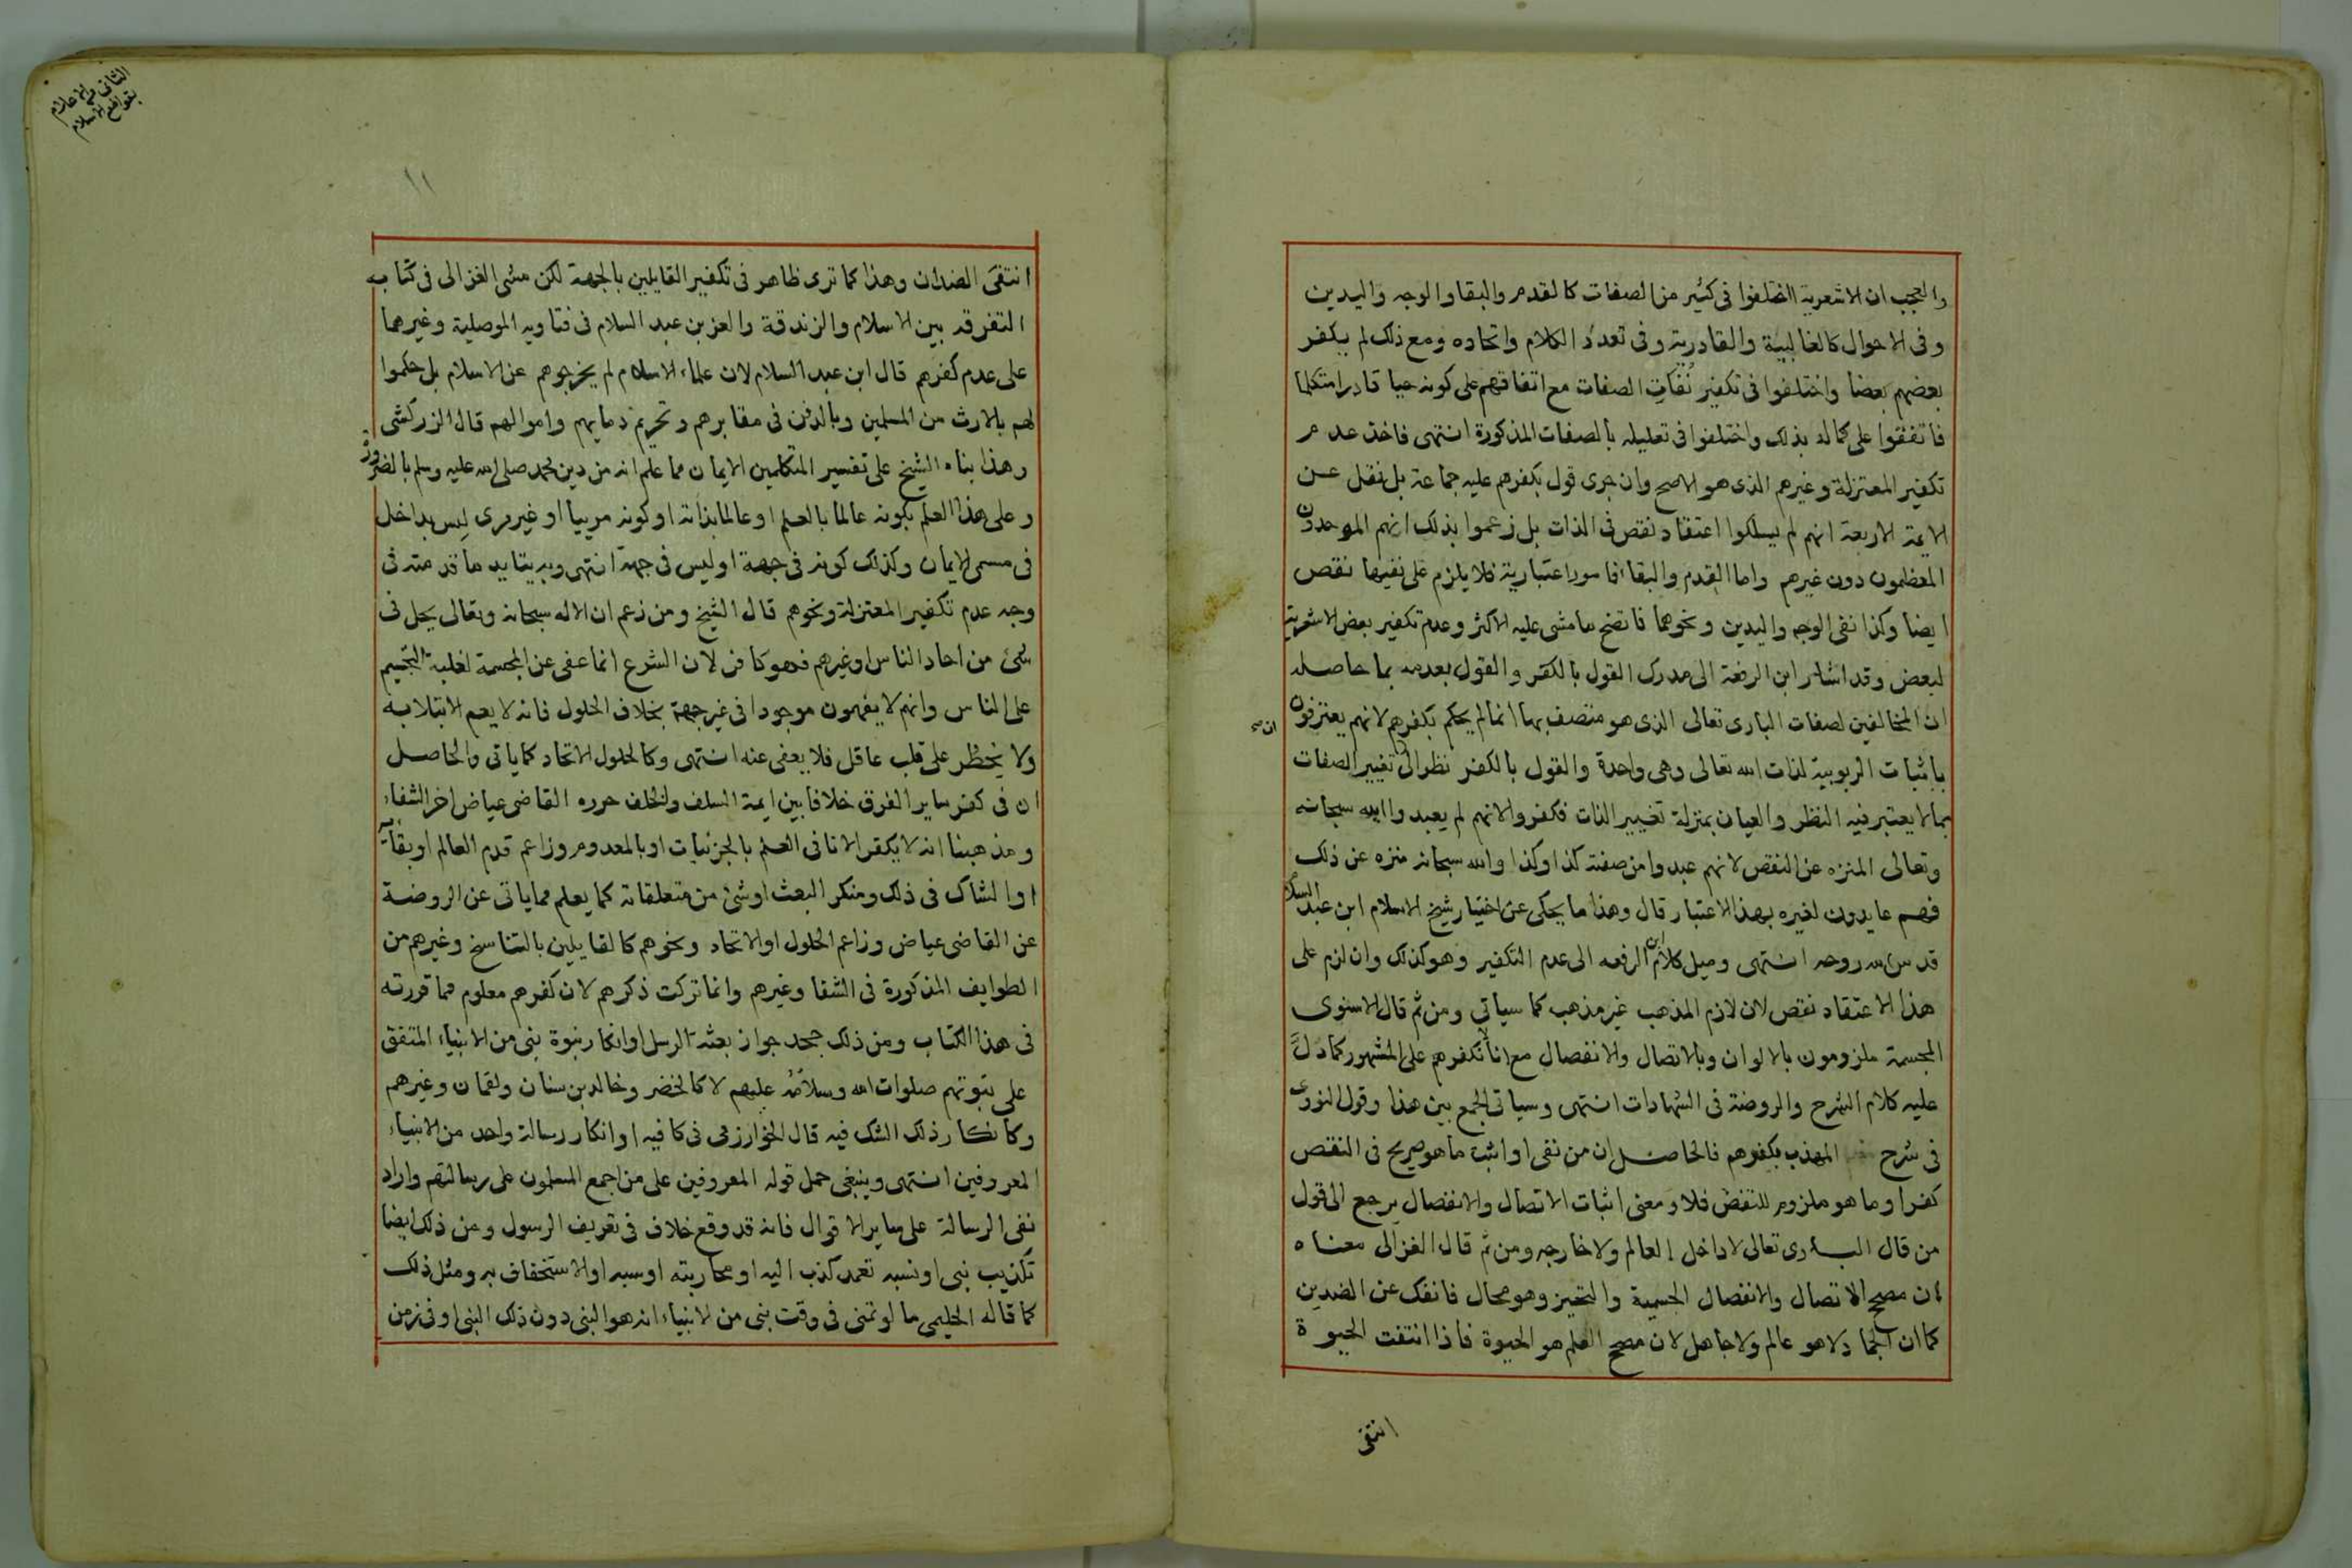 والعجب ان الاشعرية اختلفوا في كثير من الصفات كالقدم والبقا والوجه واليدين
وفي الاحوال كالغالبية والقادرية وفي تعدد الكلام واتحاده ومع ذلك لم يكفر
بعضهم بعضا واختلفوا في تكفير نُفَاتِ الصفات مع اتفاقهم على كونه حيا قادرا متكلما
فاتفقوا على كماله بذلك واختلفوا في تعليله بالصفات المذكورة انتهى فاخذ عدم
تكفير المعتزلة وغيرهم الذي هو الاصح وان جرى قول بكفرهم عليه جماعة بل نقل عن
الايمة الاربعة انهم لم يسلكوا اعتقاد نقص في الذات بل زعموا بذلك انهم الموحدون
المعظمون دون غيرهم واما القدم والبقا فامور اعتبارية فلا يلزم على نفيها نقص
ايضا وكذا نفى الوجه واليدين ونحوهما فاتضح ما مشى عليه الاكثر وعدم تكفير بعض الاشعرية
لبعض وقد اشار ابن الرفعة الى مدرك القول بالكفر والقول بعدمه بما حاصله
ان المخالفين لصفات البارى تعالى الذي هو متصف بها انما لم يحكم بكفرهم لانهم يعترفون
باثبات الربوبية لذات الله تعالى وهي واحدة والقول بالكفر نظرا الى تغيير الصفات
بما لا يعتبر فيه النظر والعيان بمنزلة تغيير الذات فكفروا لانهم لم يعبدوا الله سبحانه
وتعالى المنزه عن النقص لانهم عبدوا من صفته كذا وكذا والله سبحانه منزه عن ذلك
فهم عابدون لغيره بهذا الاعتبار قال وهذا ما يحكى عن اختيار شيخ الاسلام ابن عبد السلام
قدس الله روحه انتهى وميل كلام ابن الرفعه الى عدم التكفير وهو كذلك وان لزم على
هذا الاعتقاد نقص لان لازم المذهب غير مذهب كما سياتي ومن ثم قال الاسنوى
المجسمة ملزومون بالالوان وبالاتصال والانفصال مع انا لا نكفرهم على المشهور كما دلَّ
عليه كلام الشرح والروضة في الشهادات انتهى وسياتي الجمع بين هذا وقول النووى
في شرح المهذب بكفرهم فالحاصل ان من نفى او اثبت ما هو صريح في النقص
كفر او ما هو ملزوم للنقص فلا ومعنى اثبات الاتصال والانفصال يرجع الى قول
من قال البارى تعالى لا داخل العالم ولا خارجه ومن ثم قال الغزالى معناه
ان مصحح الاتصال والانفصال الجسمية والتحيز وهو محال فانفك عن الضدين
كما ان الجماد لا هو عالم ولا جاهل لان مصحح العلم هو الحيوة فاذا انتفت الحيوة
انتقى
الثاني من الاعلام
بقواطع الاسلام
١١
انتفى الضدان وهذا كما ترى ظاهر في تكفير القايلين بالجهة لكن مشى الغزالى في كتابه
التفرقه بين الاسلام والزندقة والعز بن عبد السلام في فتاويه الموصلية وغيرهما
على عدم كفرهم قال ابن عبد السلام لان علماء الاسلام لم يخرجوهم عن الاسلام بل حكموا
لهم بالارث من المسلمين وبالدفن في مقابرهم وتحريم دمايهم واموالهم قال الزركشى
وهذا بناه الشيخ على تفسير المتكلمين الايمان مما علم انه من دين محمد صلى الله عليه وسلم بالضرورة
وعلى هذا العلم بكونه عالما بالعلم او عالما بذاته او كونه مرييا او غير مرى ليس بداخل
في مسمى الايمان وكذلك كونه في جهة او ليس في جهة انتهى وبه يتايد ما قدمته في
وجه عدم تكفير المعتزلة ونحوهم قال الشيخ ومن زعم ان الاله سبحانه وتعالى يحل في
شئ من احاد الناس او غيرهم فهو كافر لان الشرع انما عفى عن المجسمة لغلبة التجسيم
على الناس وانهم لا يفهمون موجودا في غير جهة بخلاف الحلول فانه لا يعم الابتلا به
ولا يَخطُر على قلب عاقل فلا يعفى عنه انتهى وكالحلول الاتحاد كما ياتى والحاصل
ان في كفر ساير الفرق خلافا بين ايمة السلف والخلف حرره القاضي عياض اخر الشفاء
ومذهبنا انه لا يكفر الا نافى العلم بالجزئيات او بالمعدوم وزاعم قدم العالم او بقايه
او الشاك في ذلك ومنكر البعث او شئ من متعلقاته كما يعلم مما ياتى عن الروضة
عن القاضى عياض وزاعم الحلول او الاتحاد ونحوهم كالقايلين بالتناسخ وغيرهم من
الطوايف المذكورة في الشفا وغيرهم وانما تركت ذكرهم لان كفرهم معلوم مما قررته
في هذا الكتاب ومن ذلك جحد جواز بعثة الرسل او انكار نبوة نبى من الانبياء المتفق
على نبوتهم صلوات الله وسلامُه عليهم لا كالخضر وخالد بن سنان ولقمان وغيرهم
وكانكار ذلك الشك فيه قال الخوارزمى في كافيه او انكار رسالة واحد من الانبياء
المعروفين انتهى وينبغى حمل قوله المعروفين على من اجمع المسلمون على رسالتهم واراد
نفى الرسالة على ساير الاقوال فانه قد وقع خلاف في تعريف الرسول ومن ذلك ايضا
تكذيب نبى او نسبه تعمد كذب اليه او محاربته او سبه او الاستخفاف به ومثل ذلك
كما قاله الحليمى ما لو تمنى في وقت نبى من الانبياء انه هو النبى دون ذلك النبى او في زمن